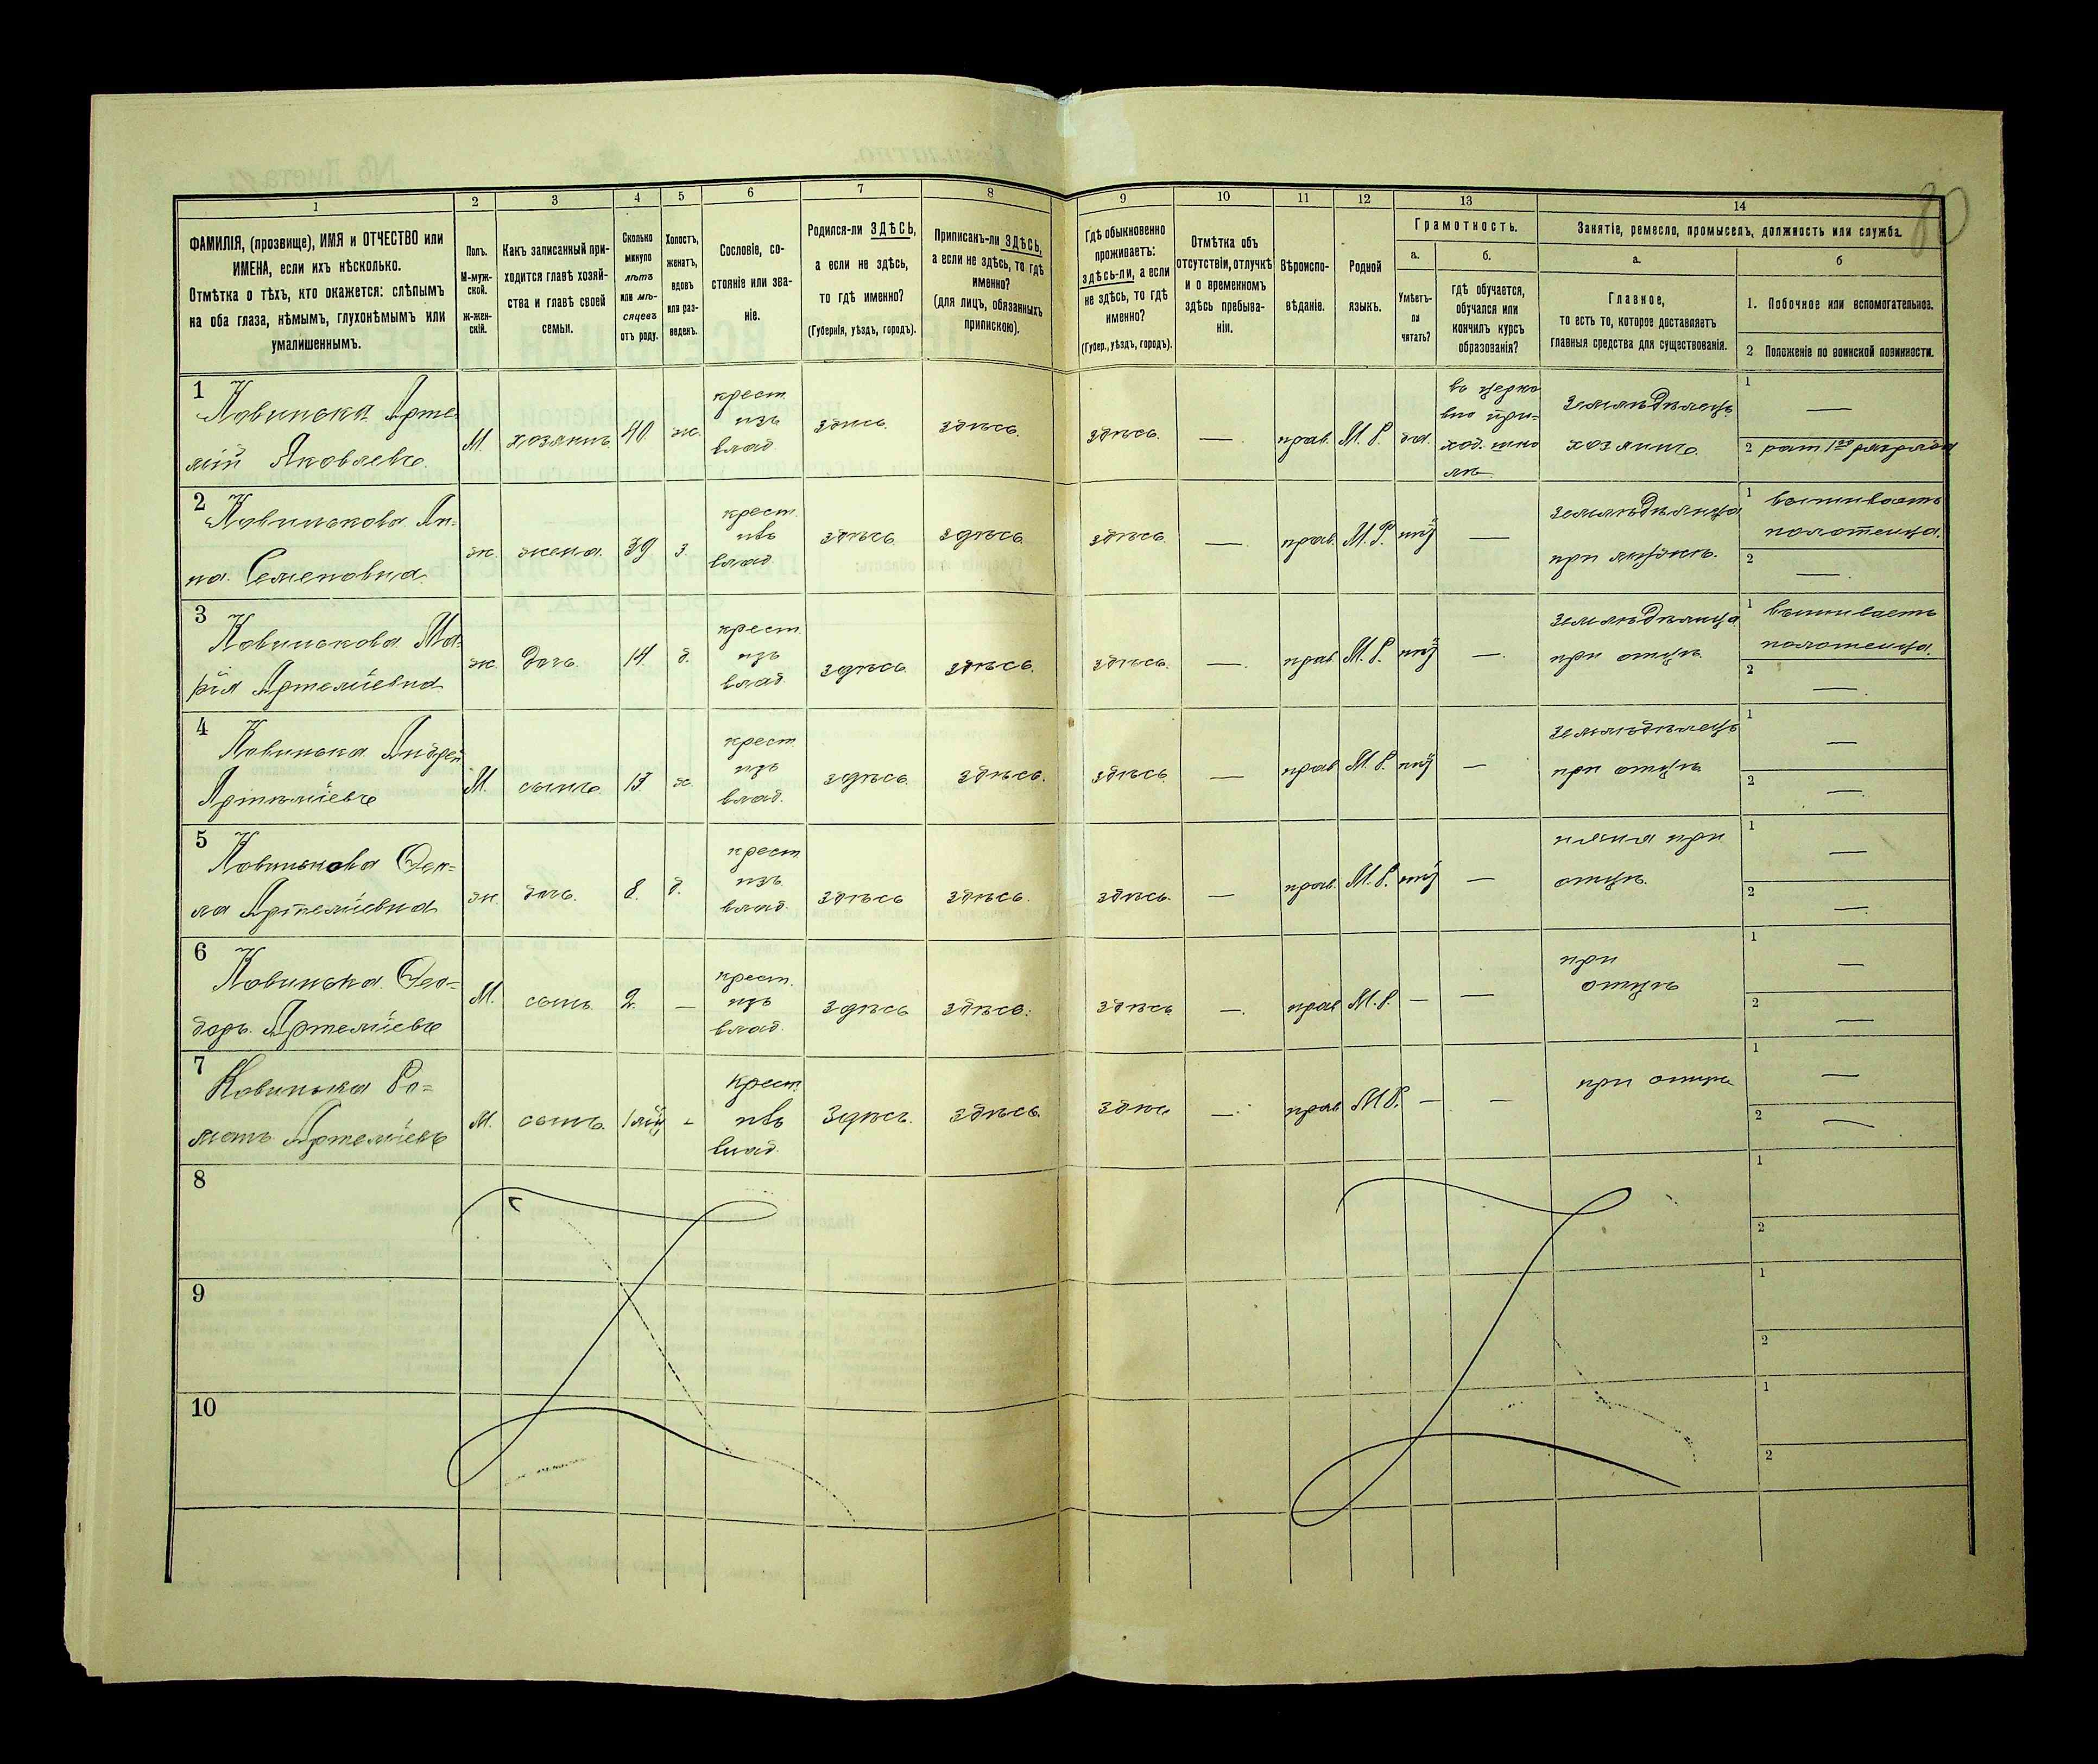 80
1 2 3 4 5 6 7 8 9 10 11 12 13 14
ФАМИЛІЯ, (прозвище), ИМЯ и ОТЧЕСТВО или
ИМЕНА, если ихъ нѣсколько.
Отмѣтка о тѣхъ, кто окажется: слѣпымъ
на оба глаза, нѣмымъ, глухонѣмымъ или
умалишеннымъ.
Полъ.
М-муж-
ской.
Ж-жен-
скій.
Какъ записанный при-
ходится главѣ хозяй-
ства и главѣ своей
семьи.
Сколько
минуло
лѣтъ
или мѣ-
сяцевъ
отъ роду.
Холостъ,
женатъ,
вдовъ
или раз-
веденъ.
Сословіе, со-
стояніе или зва-
ніе.
Родился-ли ЗДѢСЬ,
а если не здѣсь,
то гдѣ именно?
(Губернія, уѣздъ, городъ).
Приписанъ-ли ЗДѢСЬ,
а если не здѣсь, то гдѣ
именно?
(для лицъ, обязанныхъ
припискою).
Гдѣ обыкновенно
проживаетъ:
здѣсь-ли, а если
не здѣсь, то гдѣ
именно?
(Губер., уѣздъ, городъ).
Отмѣтка объ
отсутствіи, отлучкѣ
и о временномъ
здѣсь пребыва-
ніи.
Вѣроиспо-
вѣданіе.
Родной
языкъ.
Грамотность.
а.
Умѣетъ-
ли
читать?
б.
гдѣ обучается,
обучался или
кончилъ курсъ
образованія?
Занятіе, ремесло, промыселъ, должность или служба.
а.
Главное,
то есть то, которое доставляетъ
главныя средства для существованія.
б
1. Побочное или вспомогательное.
2 Положеніе по воинской повинности.
1
Ковинька Арте-
мій Яковлевъ.
М. хозяинъ. 40. ж.
крест.
изъ
влад.
здѣсь. здѣсь. здѣсь. — прав. М. Р. да.
въ церко
вно при-
ход. шко
лѣ
земледѣлецъ
хозяинъ.
1 —
2 рат. 1го разряда
2
Ковинькова Ан-
на Семеновна
ж. жена. 39 з.
крест.
изъ
влад.
здѣсь. здѣсь. здѣсь. — прав. М. Р. нѣтъ —
земледѣлица
при мужѣ.
1 вышиваетъ
полотенца.
2 —
3
Ковинькова Ма-
рія Артеміевна
ж. дочь. 14. д.
крест.
изъ
влад.
здѣсь. здѣсь. здѣсь. — прав. М. Р. нѣтъ —
земледѣлица
при отцѣ.
1 вышиваетъ
полотенца.
2 —
4
Ковинька Андрей
Артеміевъ
М. сынъ. 13. х.
крест.
изъ
влад.
здѣсь. здѣсь. здѣсь. — прав. М. Р. нѣтъ —
земледѣлецъ
при отцѣ
1 —
2 —
5
Ковинькова Ѳек-
ла Артеміевна
ж. дочь. 8. д.
крест.
изъ
влад.
здѣсь здѣсь. здѣсь. — прав. М. Р. нѣтъ —
няня при
отцѣ.
1 —
2 —
6
Ковинька Ѳео-
доръ Артеміевъ
М. сынъ. 2. —
крест.
изъ
влад.
здѣсь здѣсь. здѣсь — прав. М. Р. — —
при
отцѣ
1 —
2 —
7
Ковинька Ро-
манъ Артеміевъ
М. сынъ. -
крест.
изъ
влад.
здѣсь. здѣсь. здѣсь — прав. М. Р. — —
при отцѣ
1 —
2 —
8
1
2
9
1
2
10
1
2